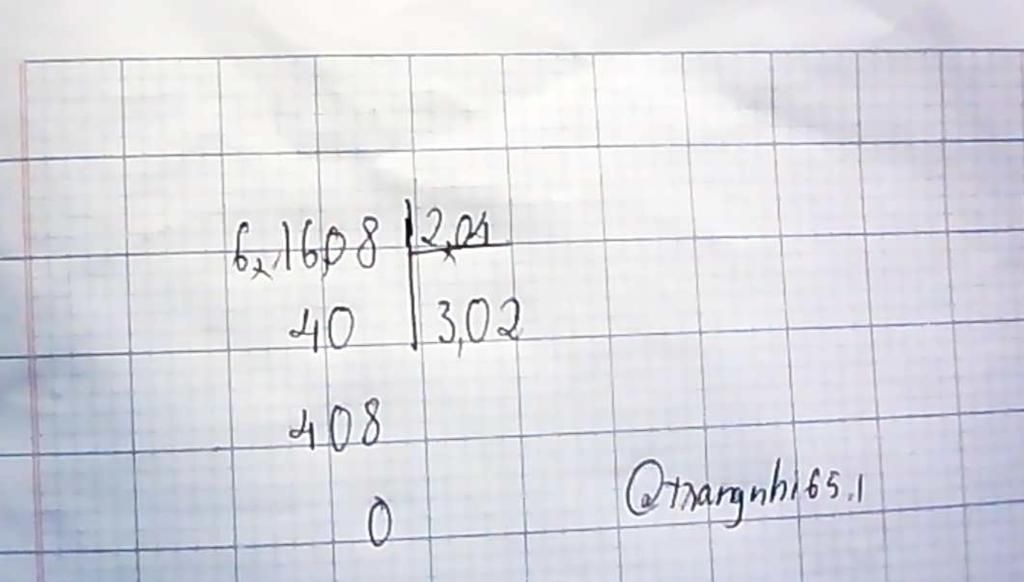 6,1608 2,04
40 3,02
408
0
@trangnhi65.1